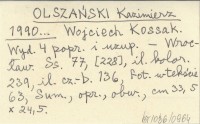 OLSZAŃSKI Kazimierz
1990... Wojciech Kossak.
Wyd. 4 popr. i uzup. - Wroc-
ław. Ss. 77, [228], il. kolor.
239, il. cz.-b. 136, fot. w tekście
63, Sum., opr., obw., cm 33,5
x 24,5.